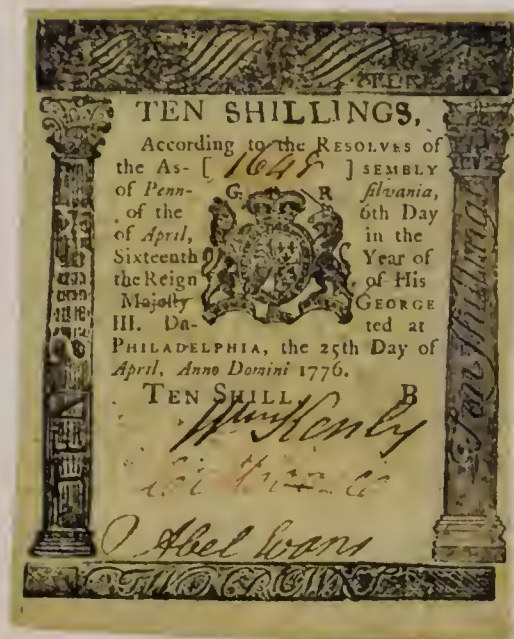 TEN SHILLINGS,
According to the RESOLVES of
the As- [ 1648 ] SEMBLY
of Penn- G. R ſilvania,
of the 6th Day
of April, in the
Sixteenth Year of
the Reign of His
Majeſty GEORGE
III. Da- ted at
PHILADELPHIA, the 25th Day of
April, Anno Domini 1776.
TEN SHILL B
Wm Kenly
Abel Evans
Ten Shillings